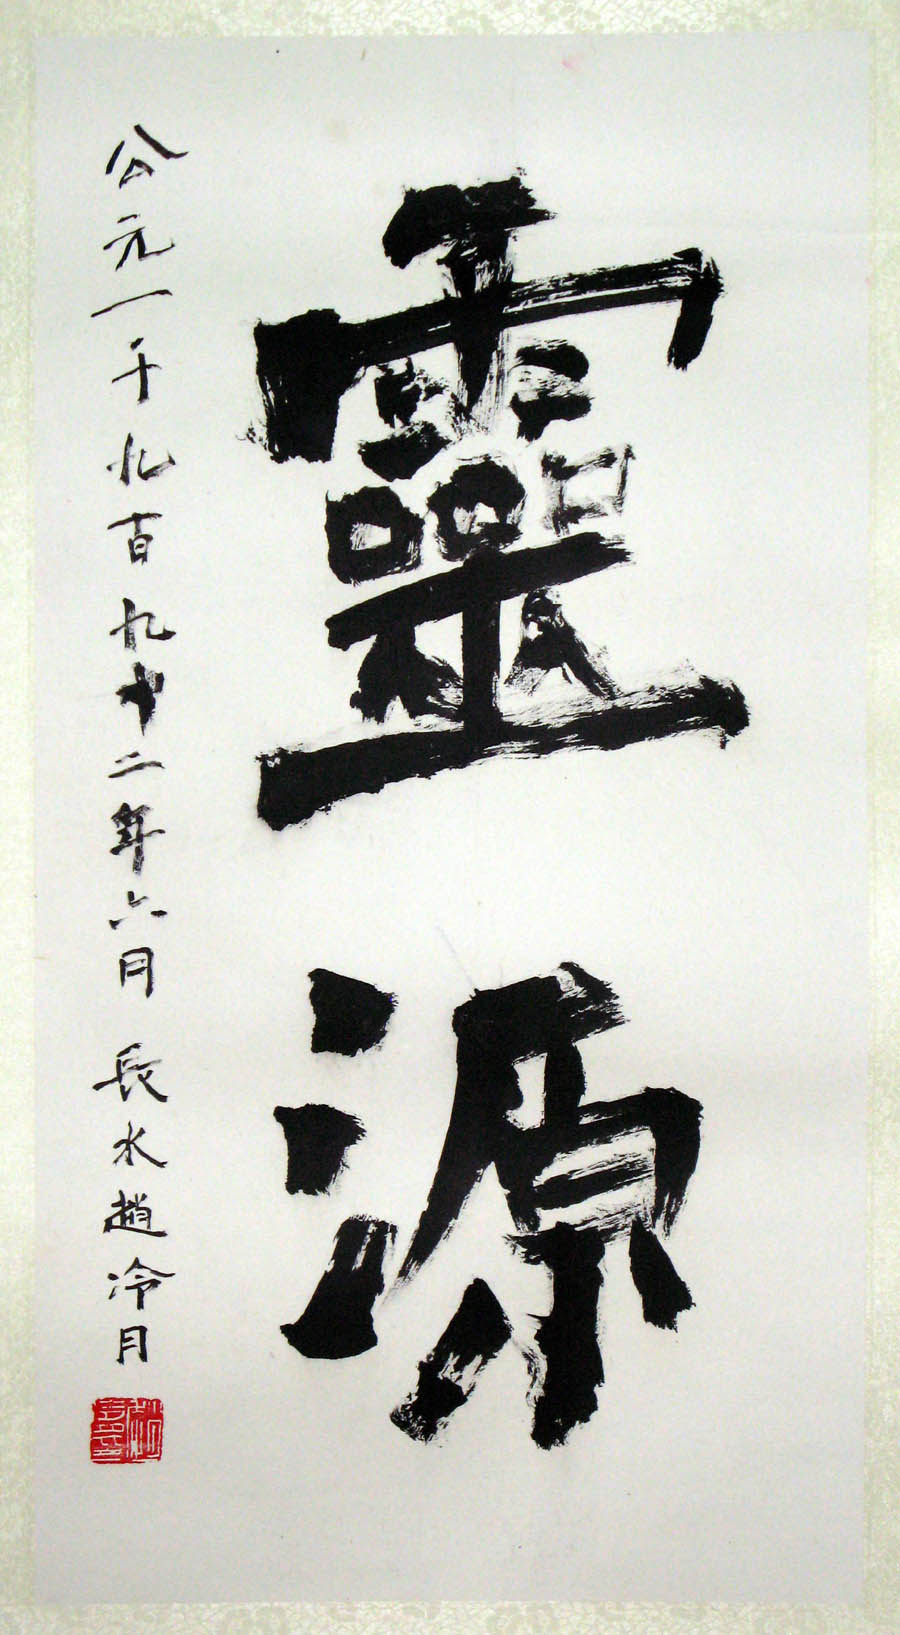 靈源
公元一千九百九十二年六月 長水趙冷月